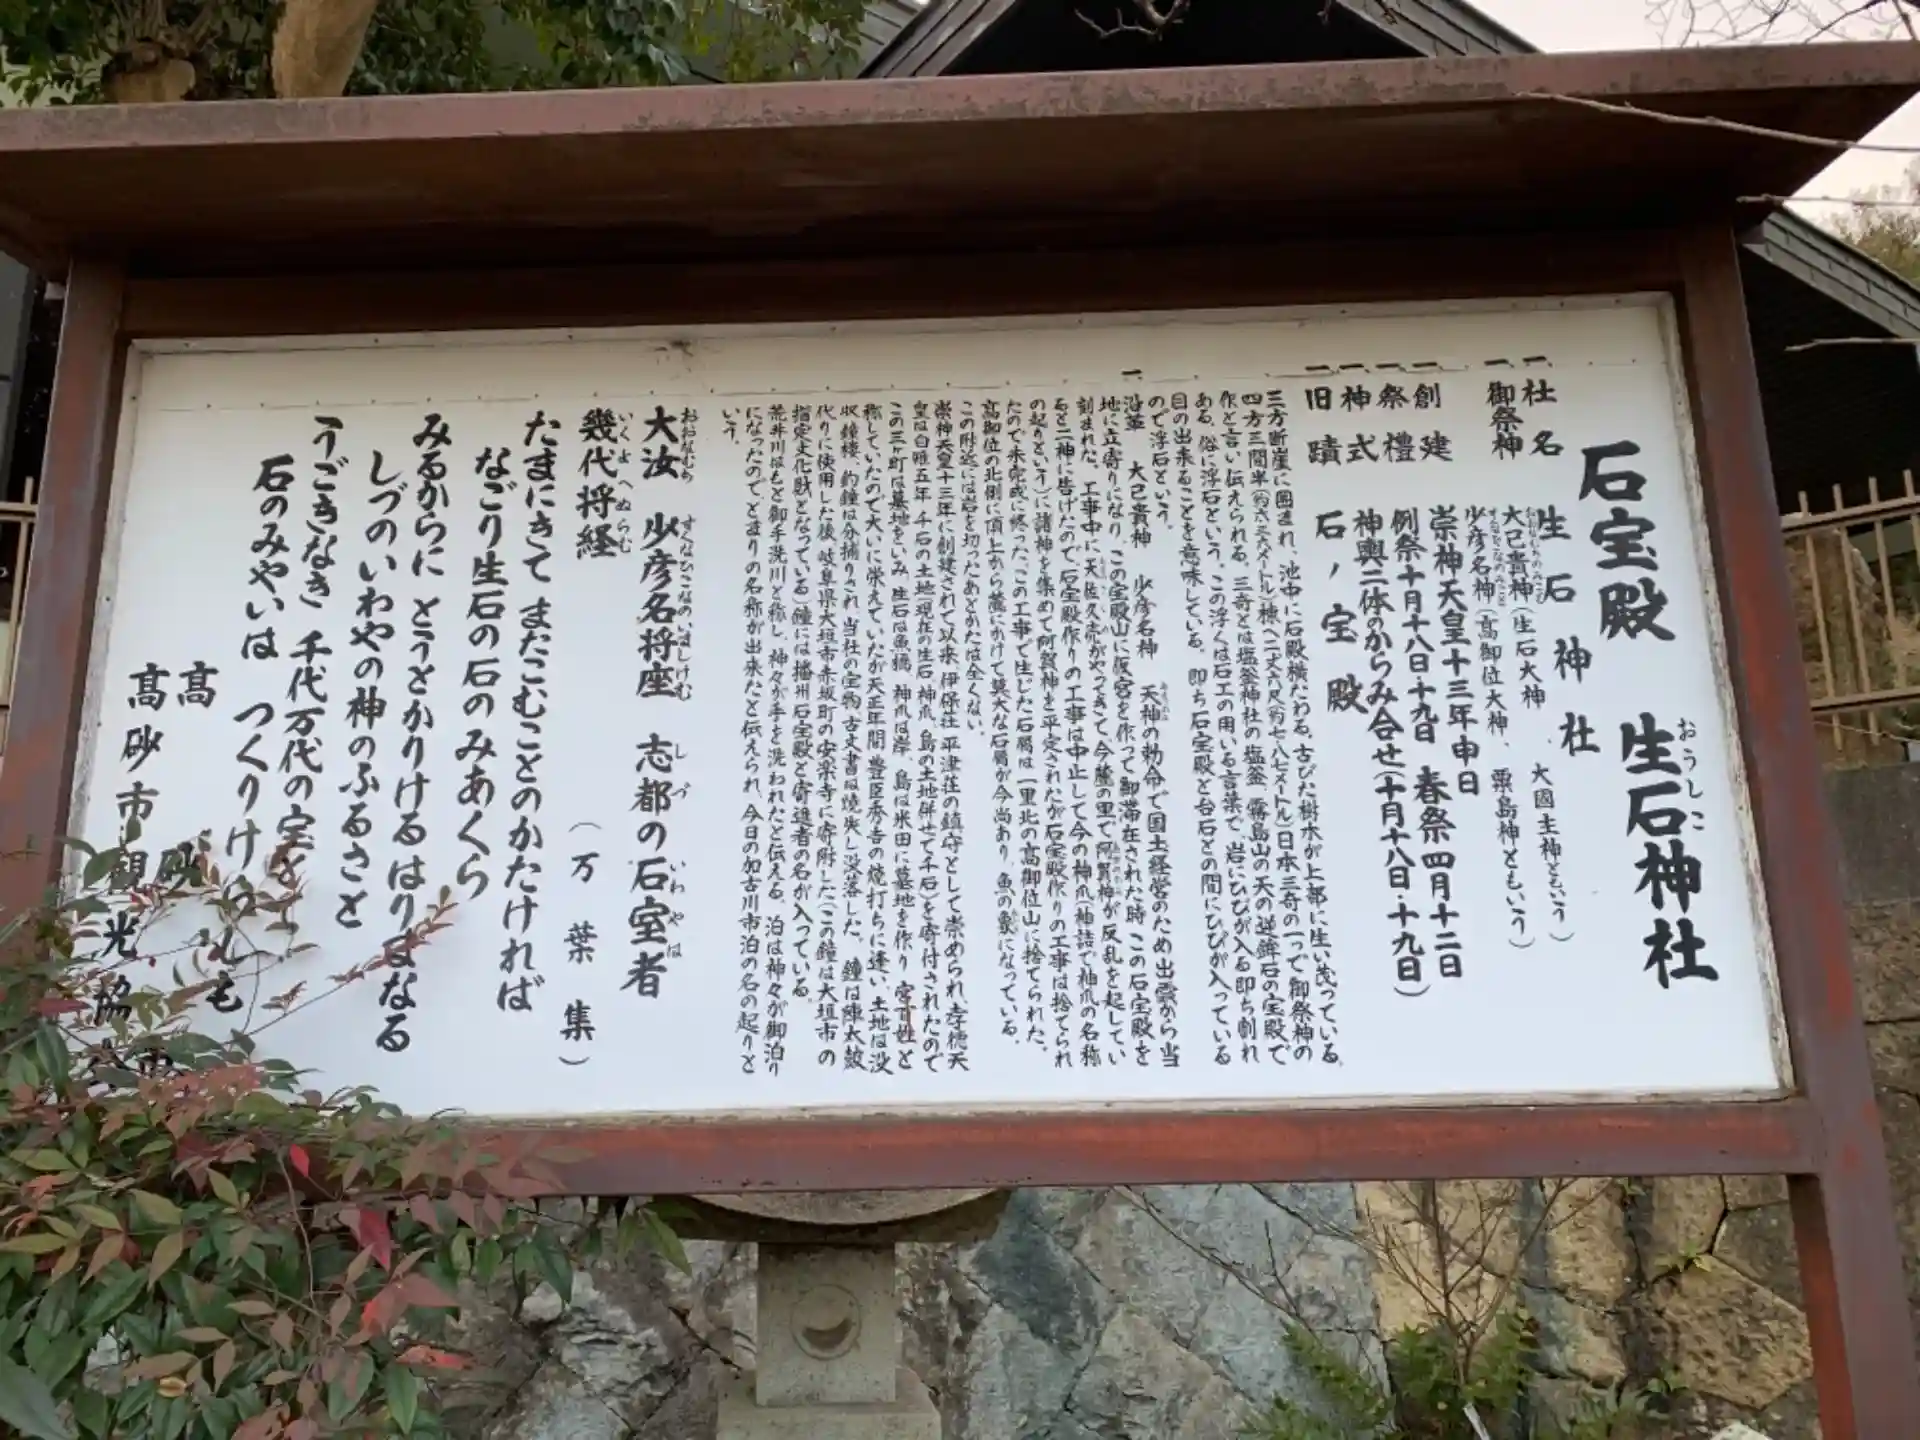 石宝殿 生石神社
おうしこ
一、社名 生石神社
一、御祭神 大己貴神(生石大神、大國主神ともいう)
少彦名神(高御位大神、粟島神ともいう)
一、創建 崇神天皇十三年申日
一、祭禮 例祭十月十八日・十九日 春祭四月十二日
一、神式 神輿二体のからみ合せ(十月十八日・十九日)
一、旧蹟 石ノ宝殿
三方断崖に囲まれ、池中に石殿横たわる。古びた樹木が上部に生い茂っている。
四方三間半(約六・三六メートル)棟へ二丈六尺(約七・八七メートル)日本三奇の一つで御祭神の
作と言い伝えられる。三奇とは塩釜神社の塩釜、霧島山の天の逆鉾石の宝殿で
ある。俗に浮石という。この浮くは石工の用いる言葉で、岩にひびが入る即ち割れ
目の出来ることを意味している。即ち石宝殿と台石との間にひびが入っている
ので浮石という。
一、沿革 大己貴神 少彦名神 天神の勅命で国土経営のため出雲から当
地に立寄りになり、この宝殿山に仮宮を作って御滞在された時この石宝殿を
刻まれた。工事中に天佐久売がやってきて、今麓の里で阿賀神が反乱を起してい
ると二神に告げたので、石宝殿作りの工事は中止して今の神爪(神詰で神爪の名称
の起りという)に諸神を集めて阿賀神を平定されたが石宝殿作りの工事は捨てられ
たので未完成に終った。この工事で生じた石屑は一里北の高御位山に捨てられた。
高御位の北側に頂上から麓にかけて莫大な石屑が今尚あり、魚の巣になっている。
この附近には岩を切ったあとかたは全くない。
崇神天皇十三年に創建されて以来、伊保荘、平津荘の鎮守として崇められ、孝徳天
皇は白雉五年、千石の土地(現在の生石、神爪、島の土地併せて千石)を寄付されたので
この三ヶ町は墓地をいみ、生石は魚橋、神爪は岸、島は米田に墓地を作り、宮百姓と
称していたので大いに栄えていたが天正年間、豊臣秀吉の焼打ちに逢い、土地は没
収、鐘楼、釣鐘は分捕りされ、当社の宝物古文書は焼失し没落した。鐘は陣太鼓
代りに使用した後、岐阜県大垣市赤坂町の安楽寺に寄附した(この鐘は大垣市の
指定文化財となっている)鐘には播州石宝殿と寄進者の名が入っている。
荒井川はもと御手洗川と称し、神々が手を洗われたと伝える。泊は神々が御泊り
になったのでとまりの名称が出来たと伝えられ、今日の加古川市泊の名の起りと
いう。
大汝 少彦名将座 志都の石室者
おおなむち すくなひこなのいましけむ しづ いわやは
幾代将経 (万葉集)
いくよへぬらむ
たまにきて またこむことのかたければ
なごり生石の石のみあくら
みるからに とうとかりけるはりまなる
しづのいわやの神のふるさと
うごきなき 千代万代の宝を
石のみやいは つくりけらしも
高砂市
高砂市観光協会